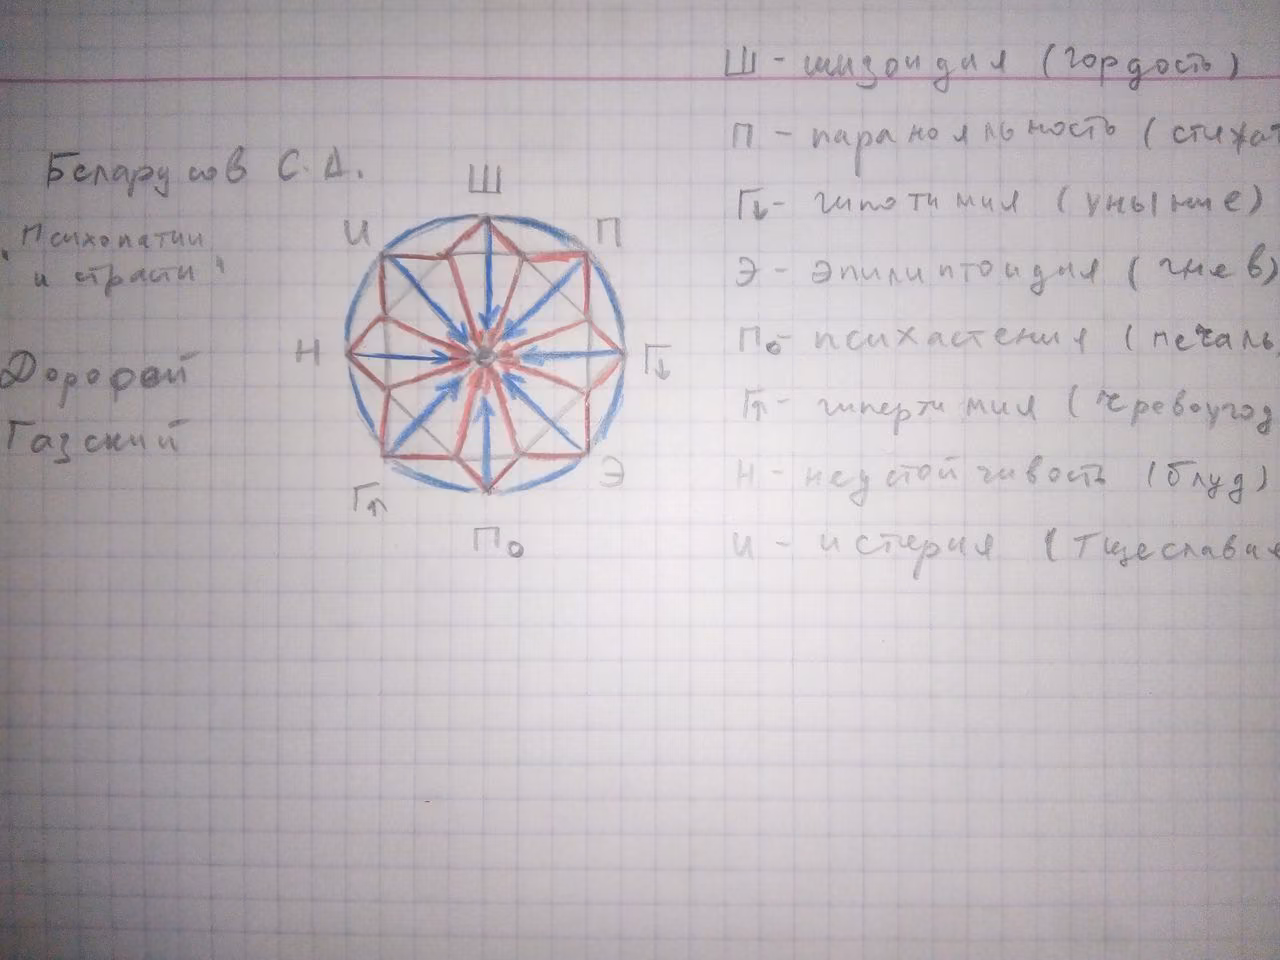 Беларусов С.А.
"Психопатии
и страсти"
Дорофей
Газский
Ш
И
П
Н
Г↓
Г↑
Э
По
Ш - шизоидия (гордость)
П - паранояльность (стяжат
Г↓ - гипотимия (уныние)
Э - эпилиптоидия (гнев)
По - психастения (печаль
Г↑ - гипертимия (чревоугод
Н - неустойчивость (блуд)
И - истерия (Тщеславие